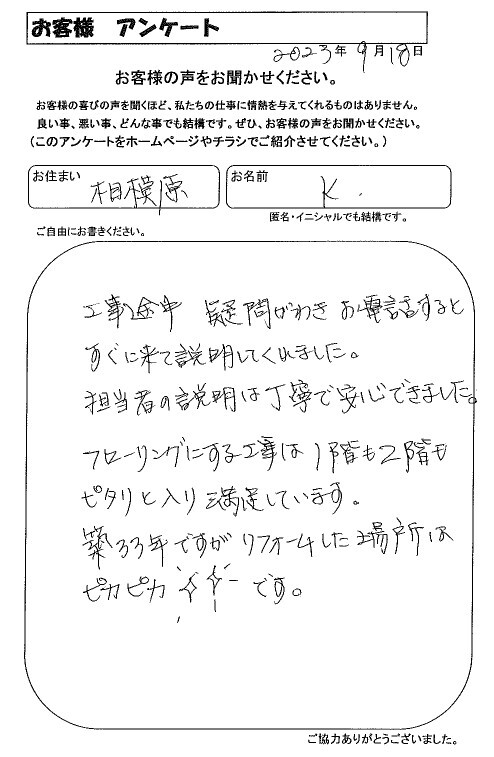 お客様 アンケート
2023年9月18日
お客様の声をお聞かせください。
お客様の喜びの声を聞くほど、私たちの仕事に情熱を与えてくれるものはありません。
良い事、悪い事、どんな事でも結構です。ぜひ、お客様の声をお聞かせください。
(このアンケートをホームページやチラシでご紹介させてください。)
お住まい 相模原
お名前 K.
匿名・イニシャルでも結構です。
ご自由にお書きください。
工事途中 疑問がわき お電話すると
すぐに来て説明してくれました。
担当者の説明は丁寧で安心できました。
フローリングにする工事は1階も2階も
ピタリと入り満足しています。
築33年ですがリフォームした場所は
ピカピカです。
ご協力ありがとうございました。